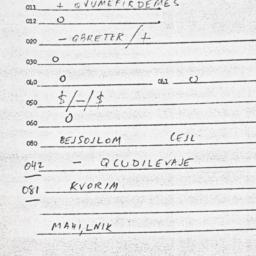 011 + QVUMEFIRDEMES
012 O
020 - GBRETER / +
030 O
040 O 041 O
050 $ / - / $
060 O
080 BEJSOJLOM CEJL
042 - QCUDILEVAJE
081 KVORIM
MAHI,LNIK